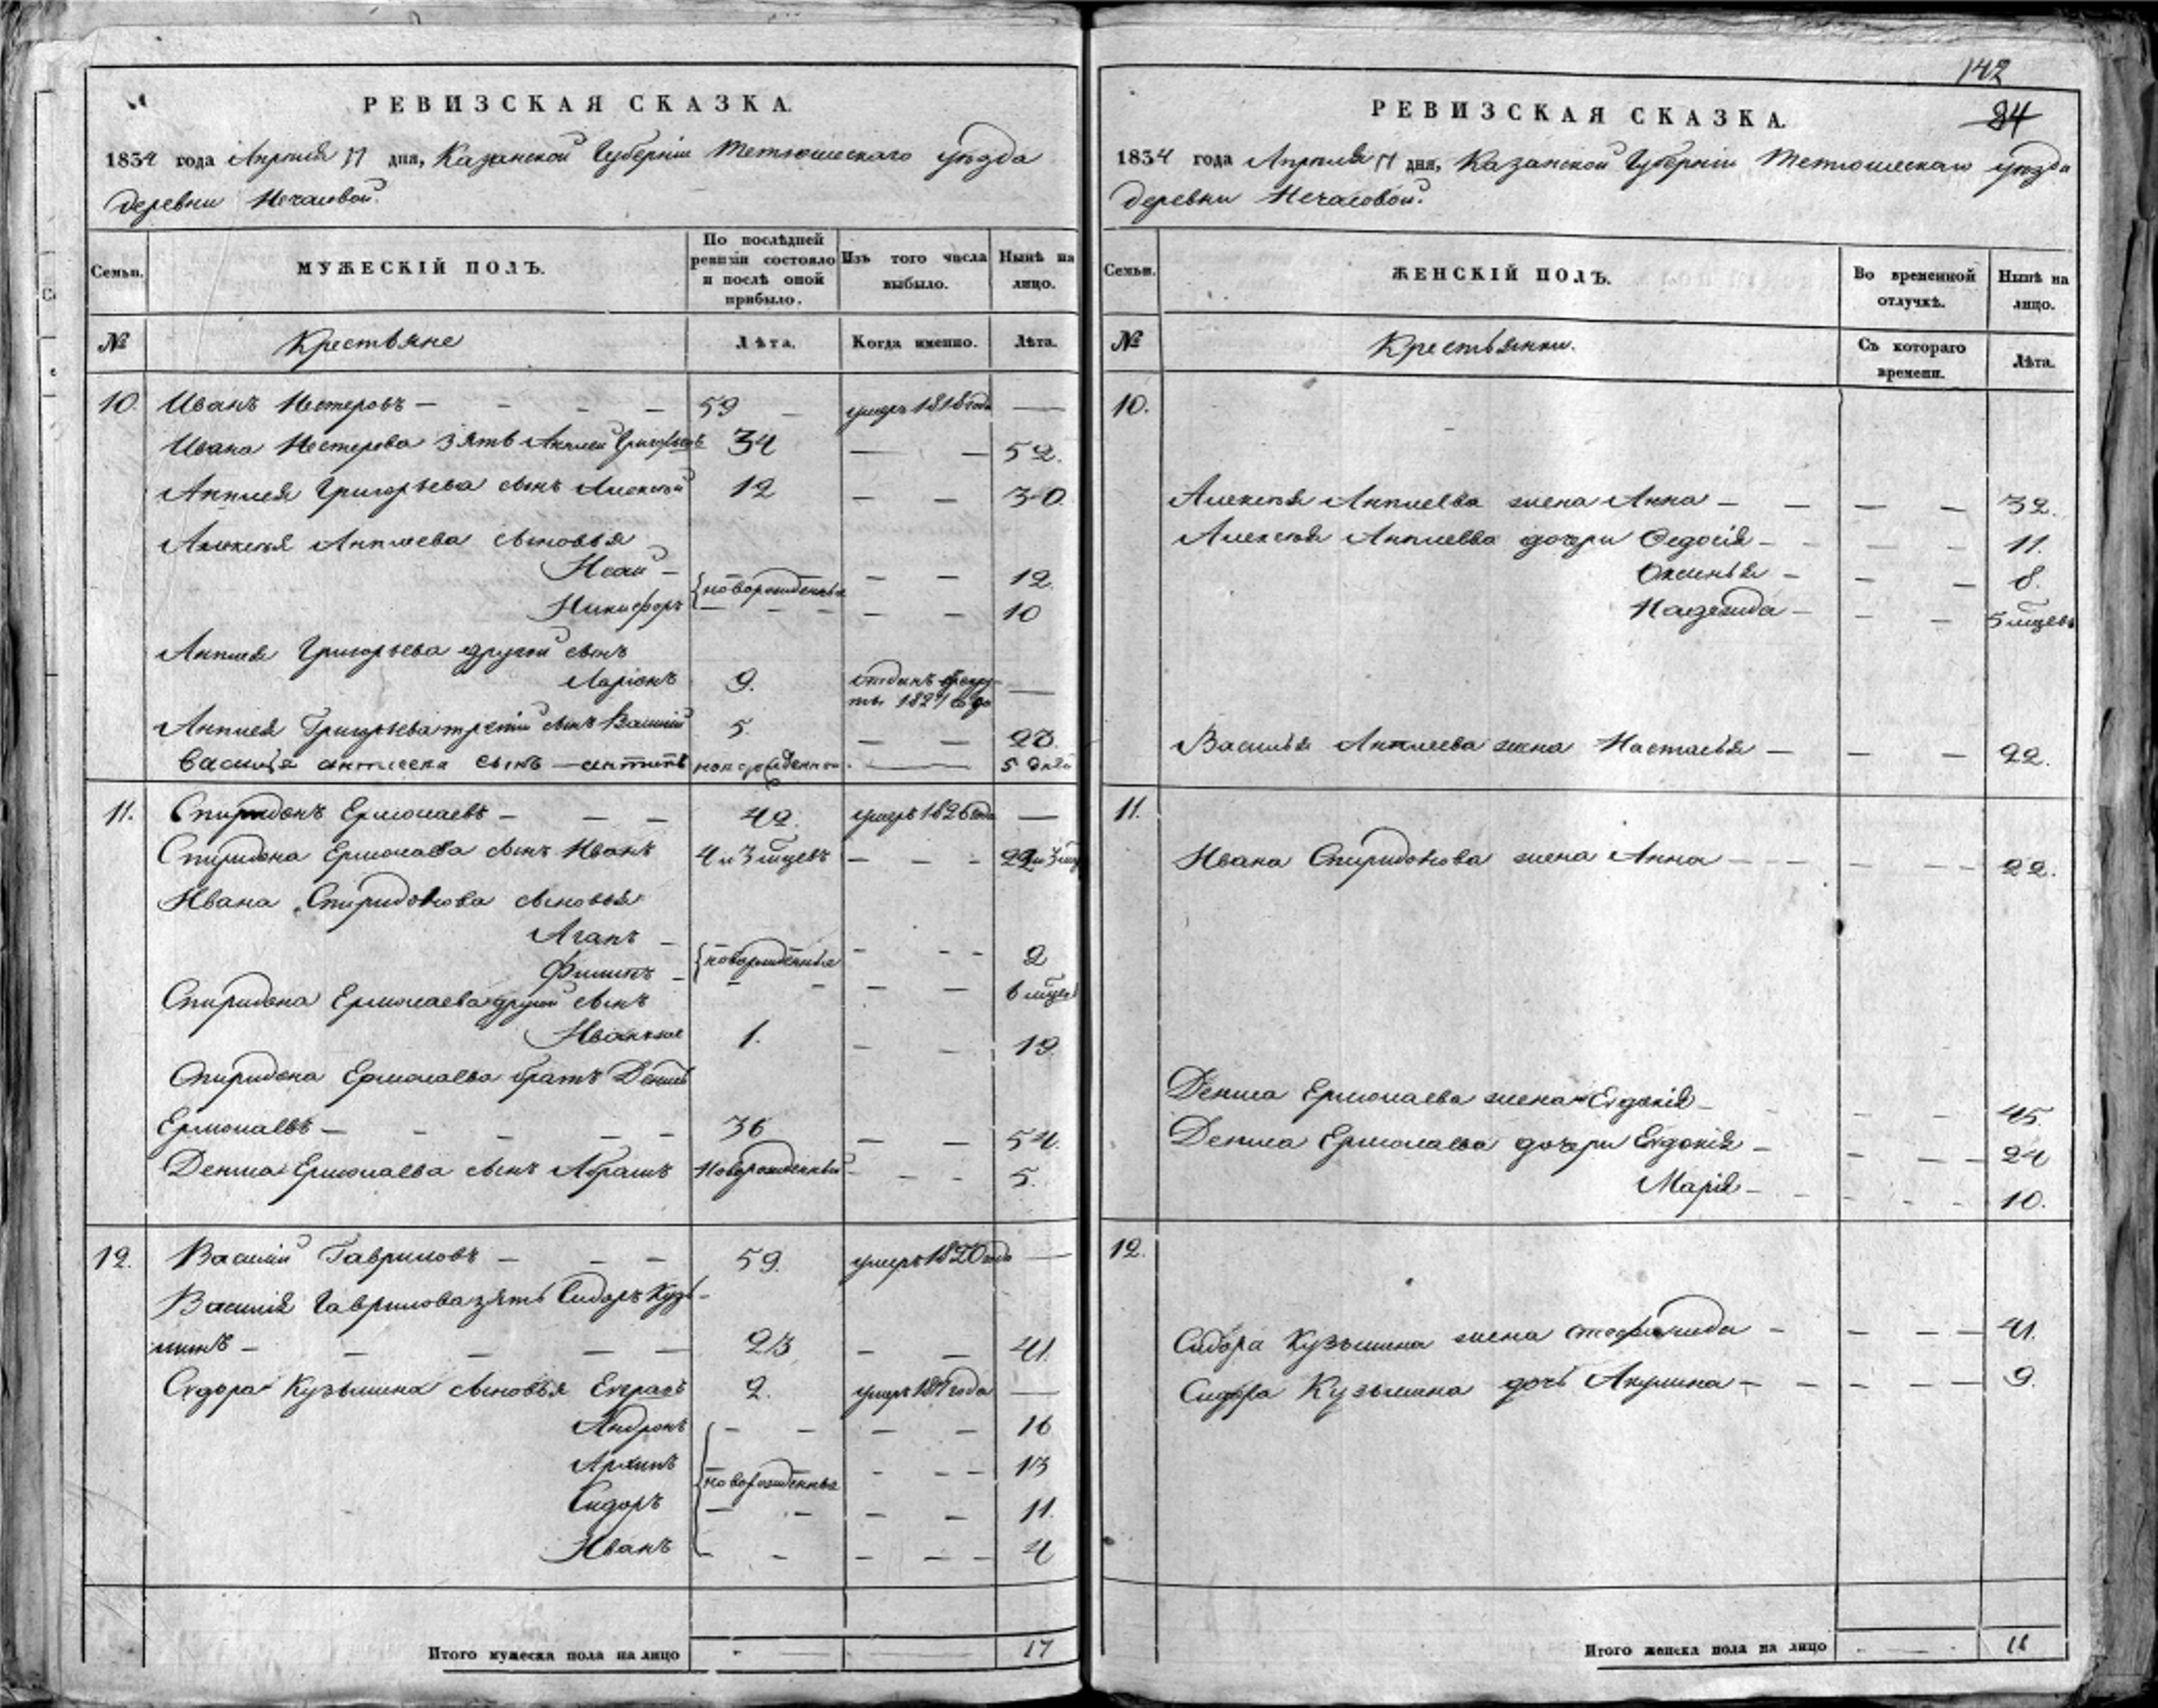 РЕВИЗСКАЯ СКАЗКА.
1834 года Апреля 17 дня, Казанской Губерніи Тетюшескаго уѣзда
деревни Нечасовой.
Семьи.
МУЖЕСКІЙ ПОЛЪ.
По послѣдней ревизіи состояло и послѣ оной прибыло.
Изъ того числа выбыло.
Нынѣ на лицо.
№
Крестьяне
Лѣта.
Когда именно.
Лѣта.
10. Иванъ Нестеровъ — 59 умеръ 1818 года —
Ивана Нестерова зять Григорьевъ 34 — 52.
Григорьева сынъ Алексей 12 — 30.
Алексея сыновья
Исай — новорожденныя — 12.
Никифоръ — 10
Григорьева другой сынъ
Ларіонъ 9. 1827 года —
Григорьева третій сынъ Василій 5. — 23.
Василья сынъ 5 дней
11. Спиридонъ Ермолаевъ — 42. умеръ 1826 года —
Спиридона Ермолаева сынъ Иванъ 4 и 3 мцевъ — 22 и 3 мц
Ивана Спиридонова сыновья
Агапъ — новорожденныя — 2
Филипъ — 6 мцев
Спиридона Ермолаева другой сынъ
Иванъ же 1. — 19.
Спиридона Ермолаева братъ Денисъ
Ермолаевъ — 36 — 54.
Дениса Ермолаева сынъ Абрамъ Новорожденный — 5.
12. Василій Гавриловъ — 59. умеръ 1820 года —
Василія Гаврилова зять Сидоръ Кузь-
минъ — 23 — 41.
Сидора Кузьмина сыновья Евграфъ 2. умеръ года —
Андронъ — 16
Архипъ новорожденныя — 13
Сидоръ — 11.
Иванъ — 4
Итого мужеска пола на лицо 17
142
84
РЕВИЗСКАЯ СКАЗКА.
1834 года Апреля 17 дня, Казанской Губерніи Тетюшескаго уѣзда
деревни Нечасовой.
Семьи.
ЖЕНСКІЙ ПОЛЪ.
Во временной отлучкѣ.
Нынѣ на лицо.
№
Крестьянки.
Съ котораго времени.
Лѣта.
10.
Алексея жена Анна — 32.
Алексея дочери Федосія — 11.
Оксинья — 8.
Надежда — 5 мцевъ
Василья жена Настасья — 22.
11.
Ивана Спиридонова жена Анна — 22.
Дениса Ермолаева жена Евдокія — 45.
Дениса Ермолаева дочери Евдокія — 24
Марія — 10.
12.
Сидора Кузьмина жена Стефанида — 41.
Сидора Кузьмина дочь Акулина — 9.
Итого женска пола на лицо